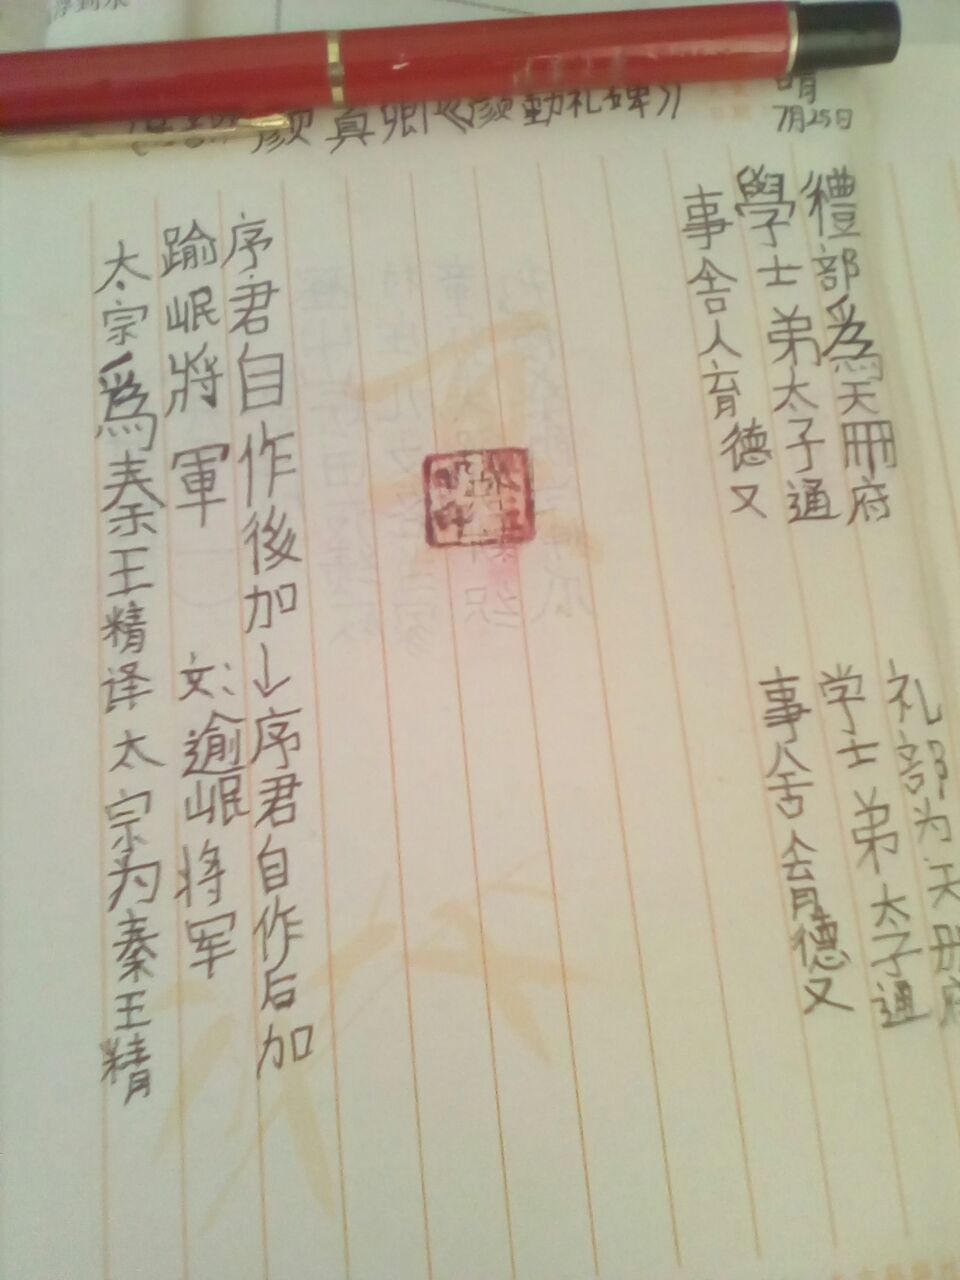 晴
7月25日
颜真卿《颜勤礼碑》
禮部爲天冊府
學士弟太子通
事舍人育德又
礼部为天册府
学士弟太子通
事舍
德又
序君自作後加↓序君自作后加
踰岷將軍
文:逾岷将军
太宗爲秦王精译太宗为秦王精